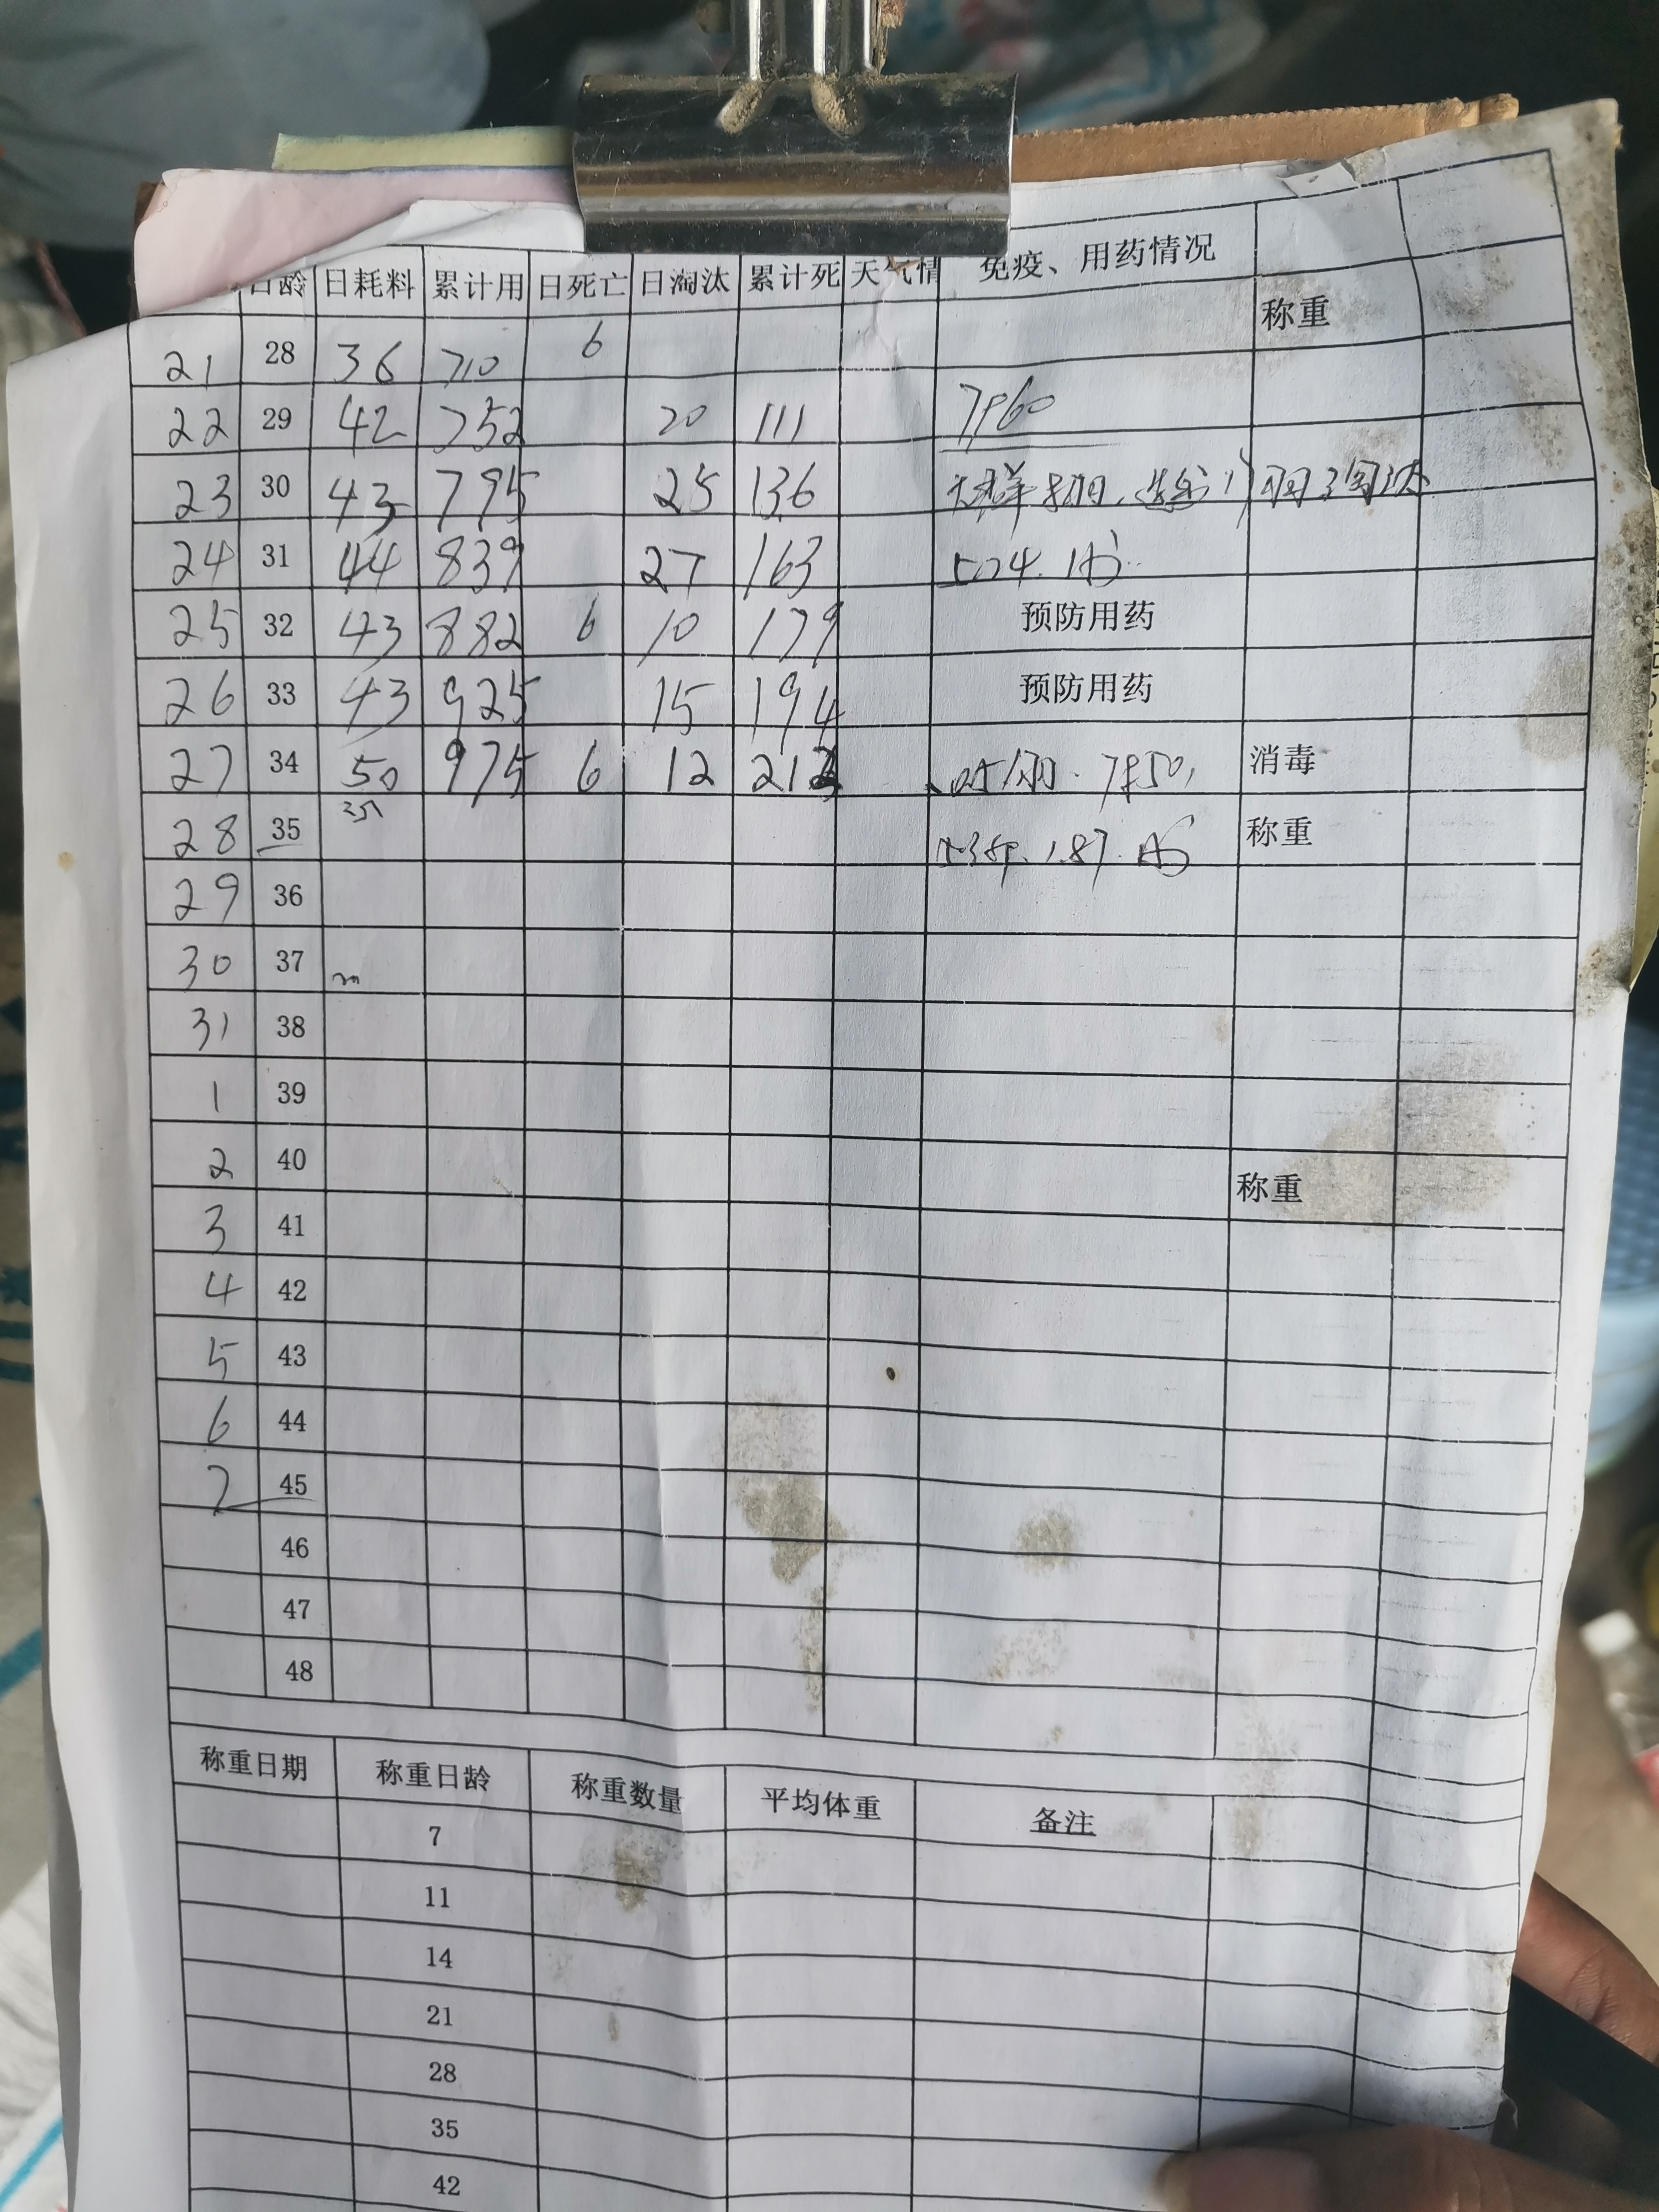 日龄 日耗料 累计用 日死亡 日淘汰 累计死 天气情 免疫、用药情况
称重
21 28 36 710 6
22 29 42 752 20 111
23 30 43 795 25 136
24 31 44 839 27 163
25 32 43 882 6 10 179 预防用药
26 33 43 925 15 194 预防用药
27 34 50 975 6 12 212 消毒
28 35 称重
29 36
30 37
31 38
1 39
2 40 称重
3 41
4 42
5 43
6 44
7 45
46
47
48
称重日期 称重日龄 称重数量 平均体重 备注
7
11
14
21
28
35
42